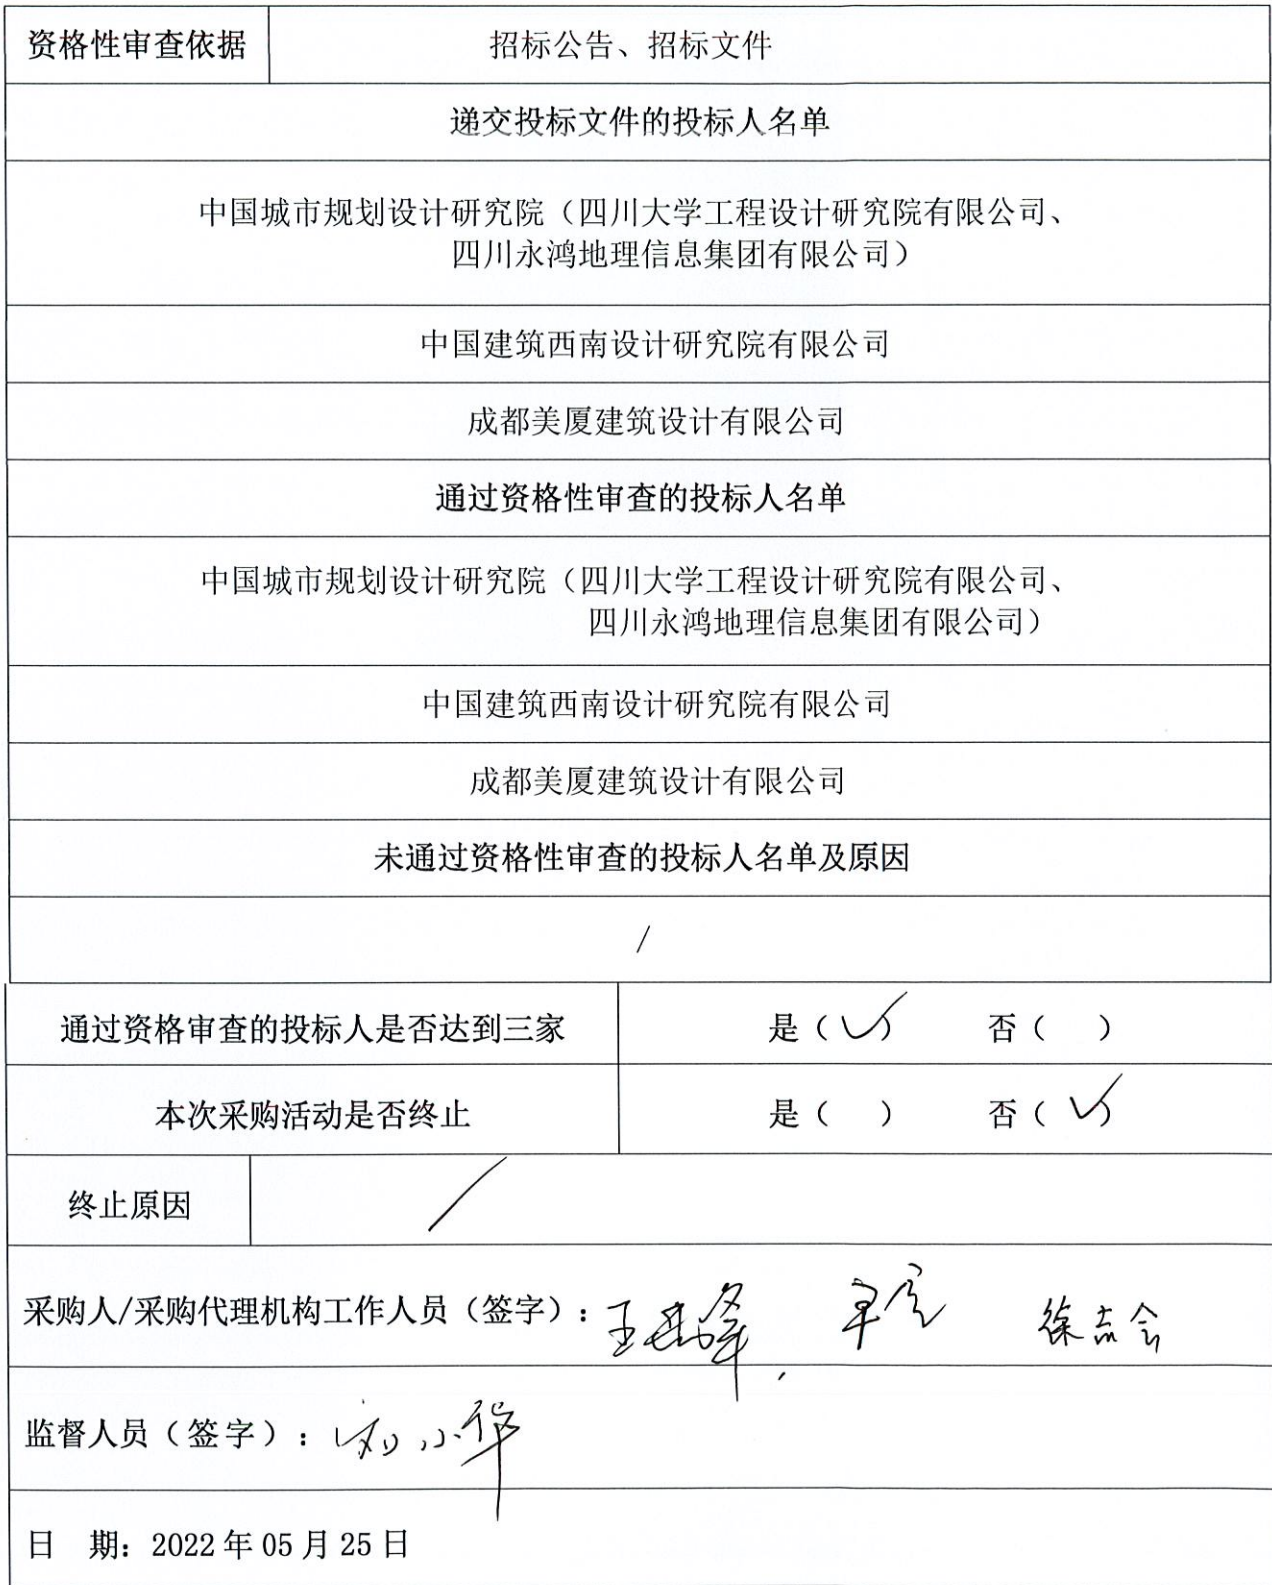 资格性审查依据 招标公告、招标文件
递交投标文件的投标人名单
中国城市规划设计研究院（四川大学工程设计研究院有限公司、
四川永鸿地理信息集团有限公司）
中国建筑西南设计研究院有限公司
成都美厦建筑设计有限公司
通过资格性审查的投标人名单
中国城市规划设计研究院（四川大学工程设计研究院有限公司、
四川永鸿地理信息集团有限公司）
中国建筑西南设计研究院有限公司
成都美厦建筑设计有限公司
未通过资格性审查的投标人名单及原因
/
通过资格审查的投标人是否达到三家 是（✓） 否（ ）
本次采购活动是否终止 是（ ） 否（✓）
终止原因 /
采购人/采购代理机构工作人员（签字）：
监督人员（签字）：
日 期：2022年05月25日